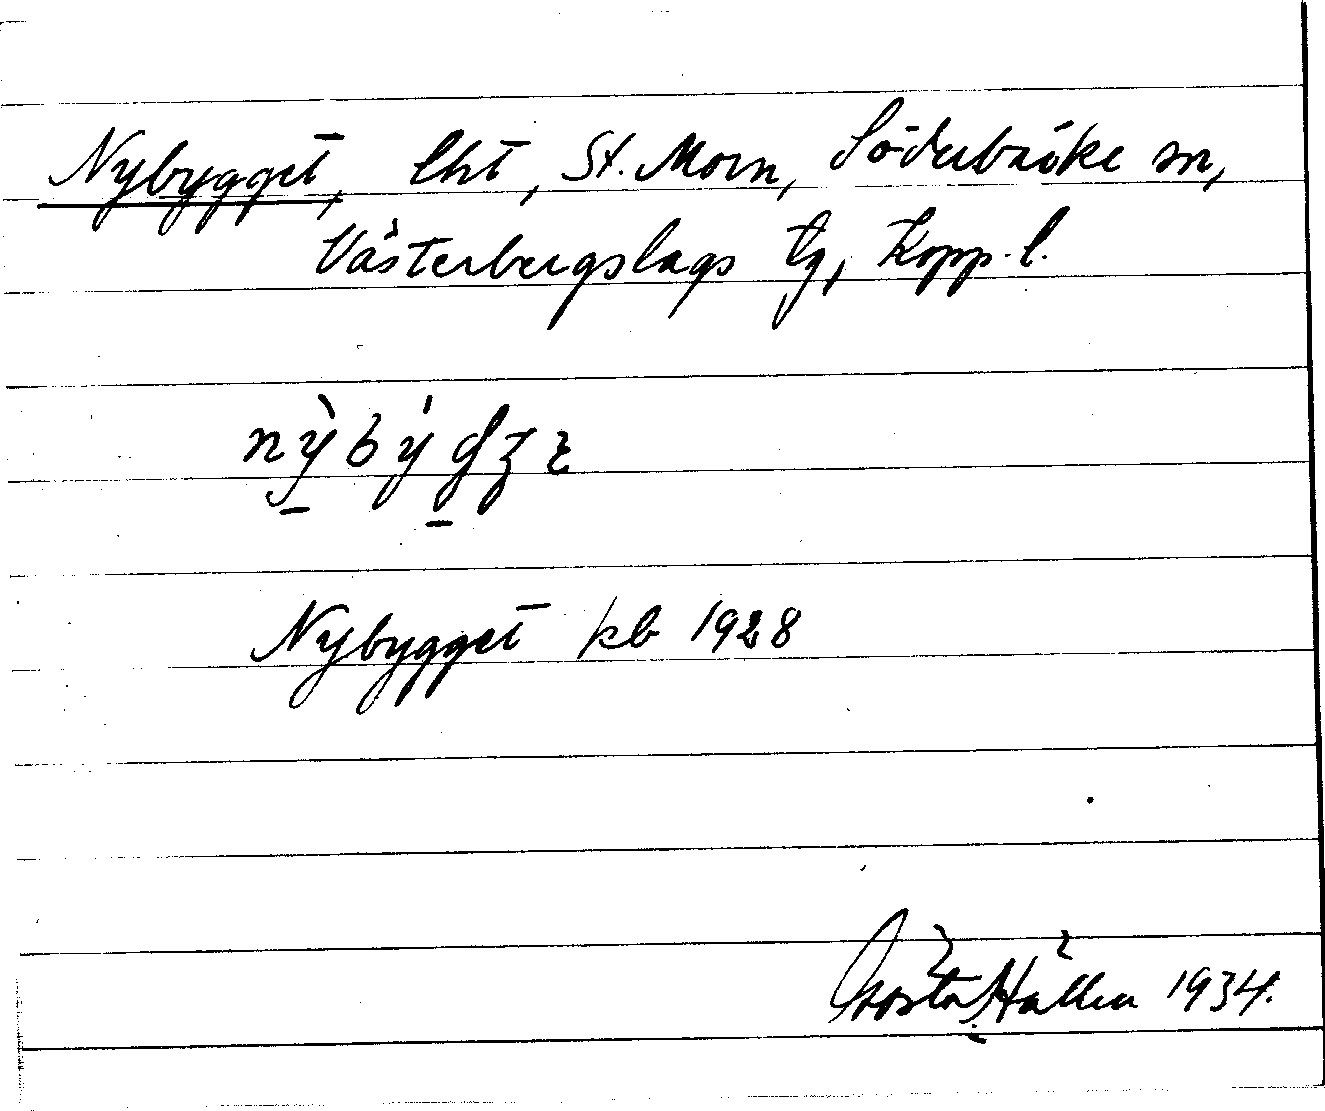 Nybygget, lht, St. Morn, Söderbärke sn,
Västerbergslags tg, Kopp. l.
nỳbýgʒɛ
Nybygget kb 1928
Gösta Hallen 1934.